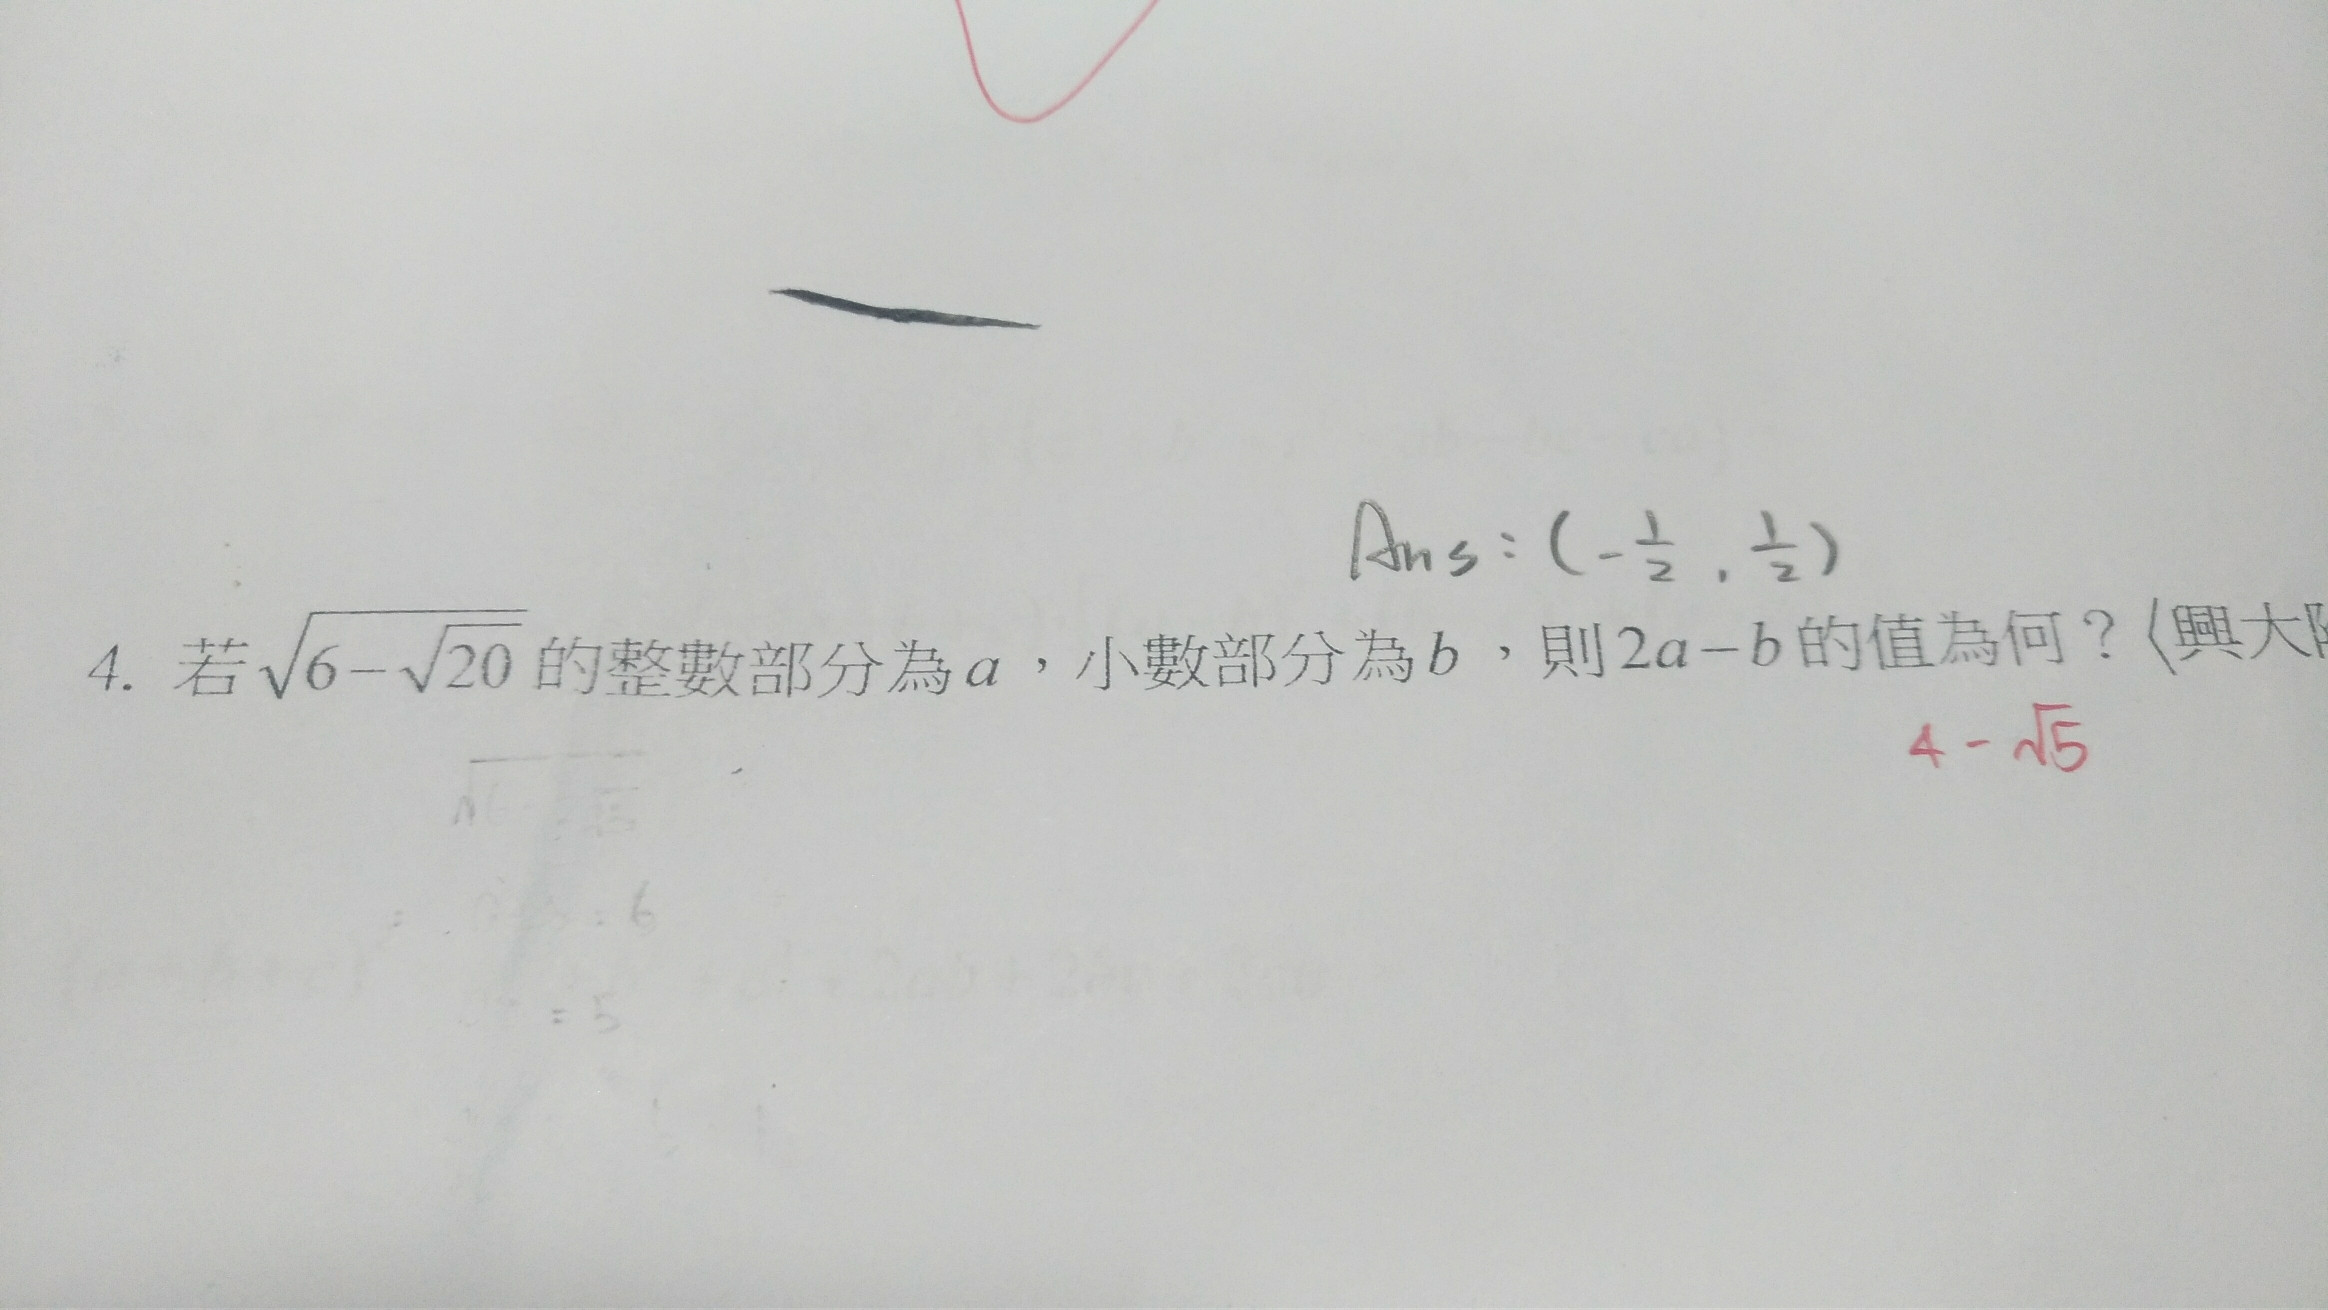 Ans : (-1/2 , 1/2)
4. 若√(6-√20) 的整數部分為a，小數部分為b，則2a-b的值為何？〈興大
4 - √5
= 6
= 5